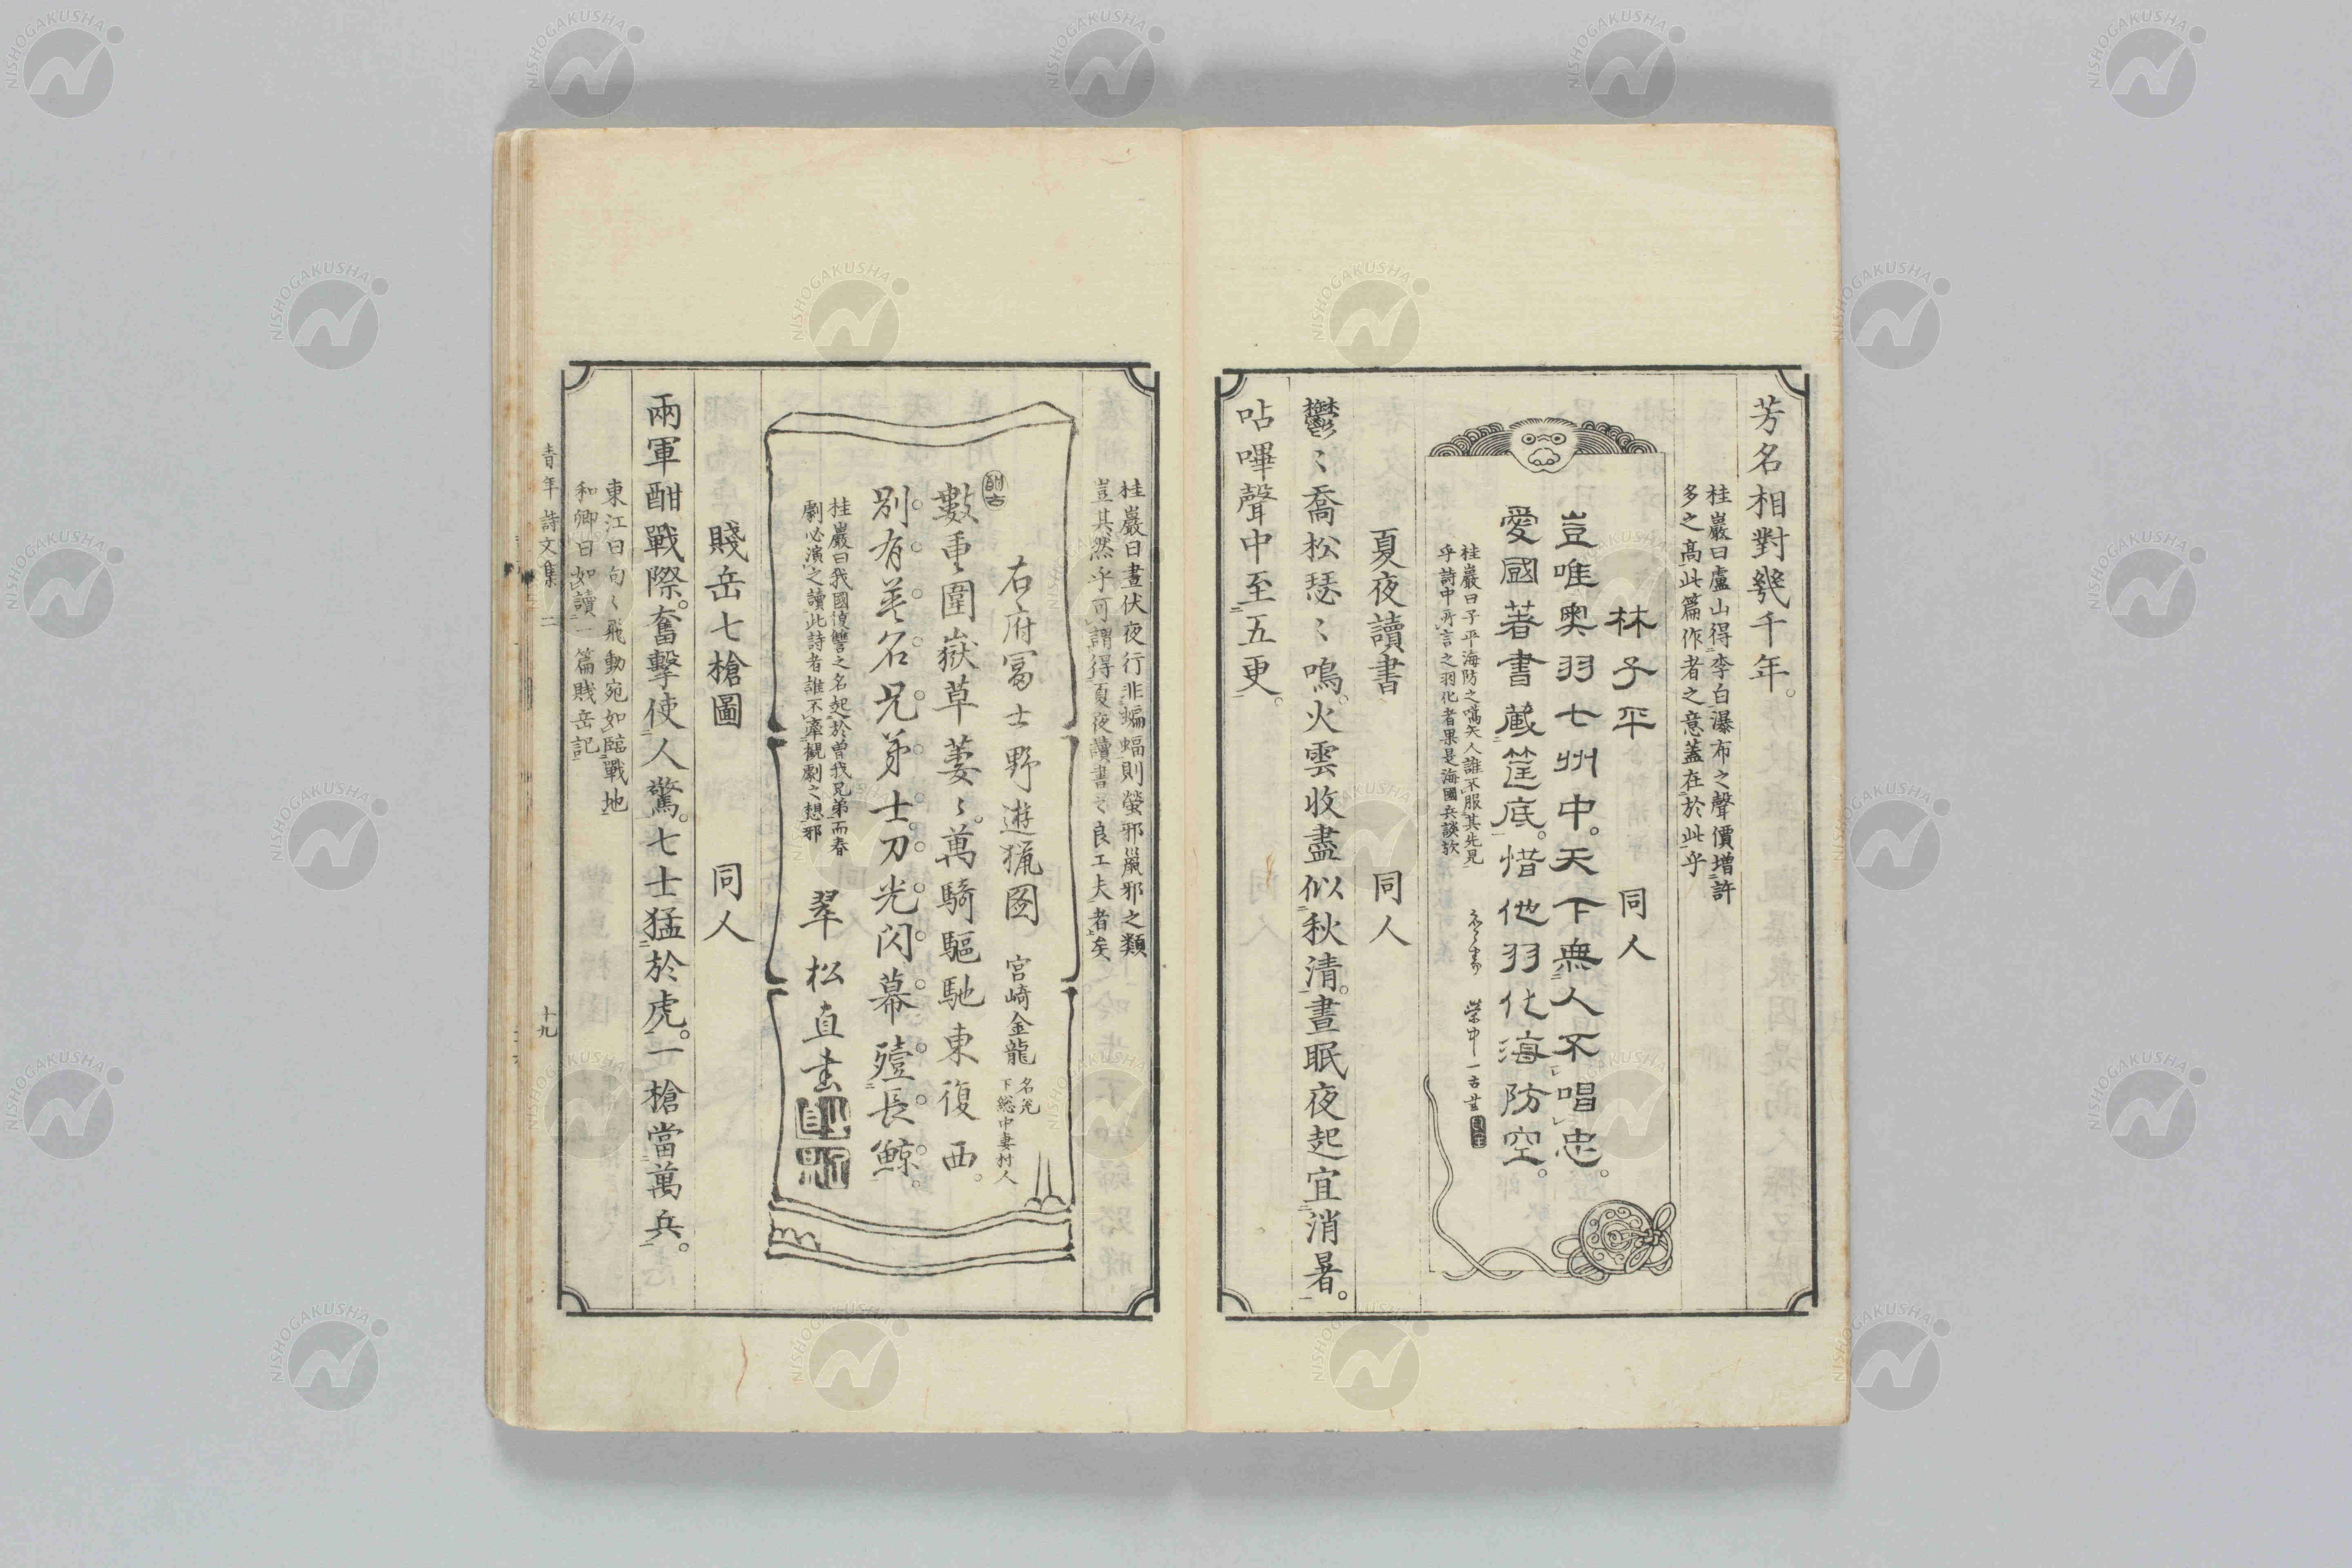 芳名相對幾千年。
桂巖曰盧山得李白瀑布之聲價增許
多之高此篇作者之意蓋在於此乎
林子平　同人
豈唯奧羽七州中。天下無人不唱忠。
愛國著書藏筐底。惜他羽化海防空。
桂巖曰子平海防之嚆矢人誰不服其先見
乎詩中所言之羽化者果是海國兵談欤
夏夜讀書　同人
鬱〻喬松瑟〻鳴。火雲收盡似秋清。晝眠夜起宜消暑。
呫嗶聲中至五更。
桂巖曰晝伏夜行非蝙蝠則螢邪鼠邪之類
豈其然乎可謂得夏夜讀書之良工夫者矣
右府富士野遊猟圖　宮崎金龍
下総中妻村人
數重圍嶽草萋〻。萬騎驅馳東復西。
別有英名兄弟士。刀光閃幕殪長鯨。
桂巖曰我國復讐之名起於曽我兄弟而春
劇必演之讀此詩者誰不牽観劇之想邪
翠松直書
賤岳七槍圖　同人
兩軍酣戰際。奮擊使人驚。七士猛於虎。一槍當萬兵。
東江曰句〻飛動宛如臨戰地
和卿曰如讀一篇賤岳記
青年詩文集 二　十九
NISHOGAKUSHA